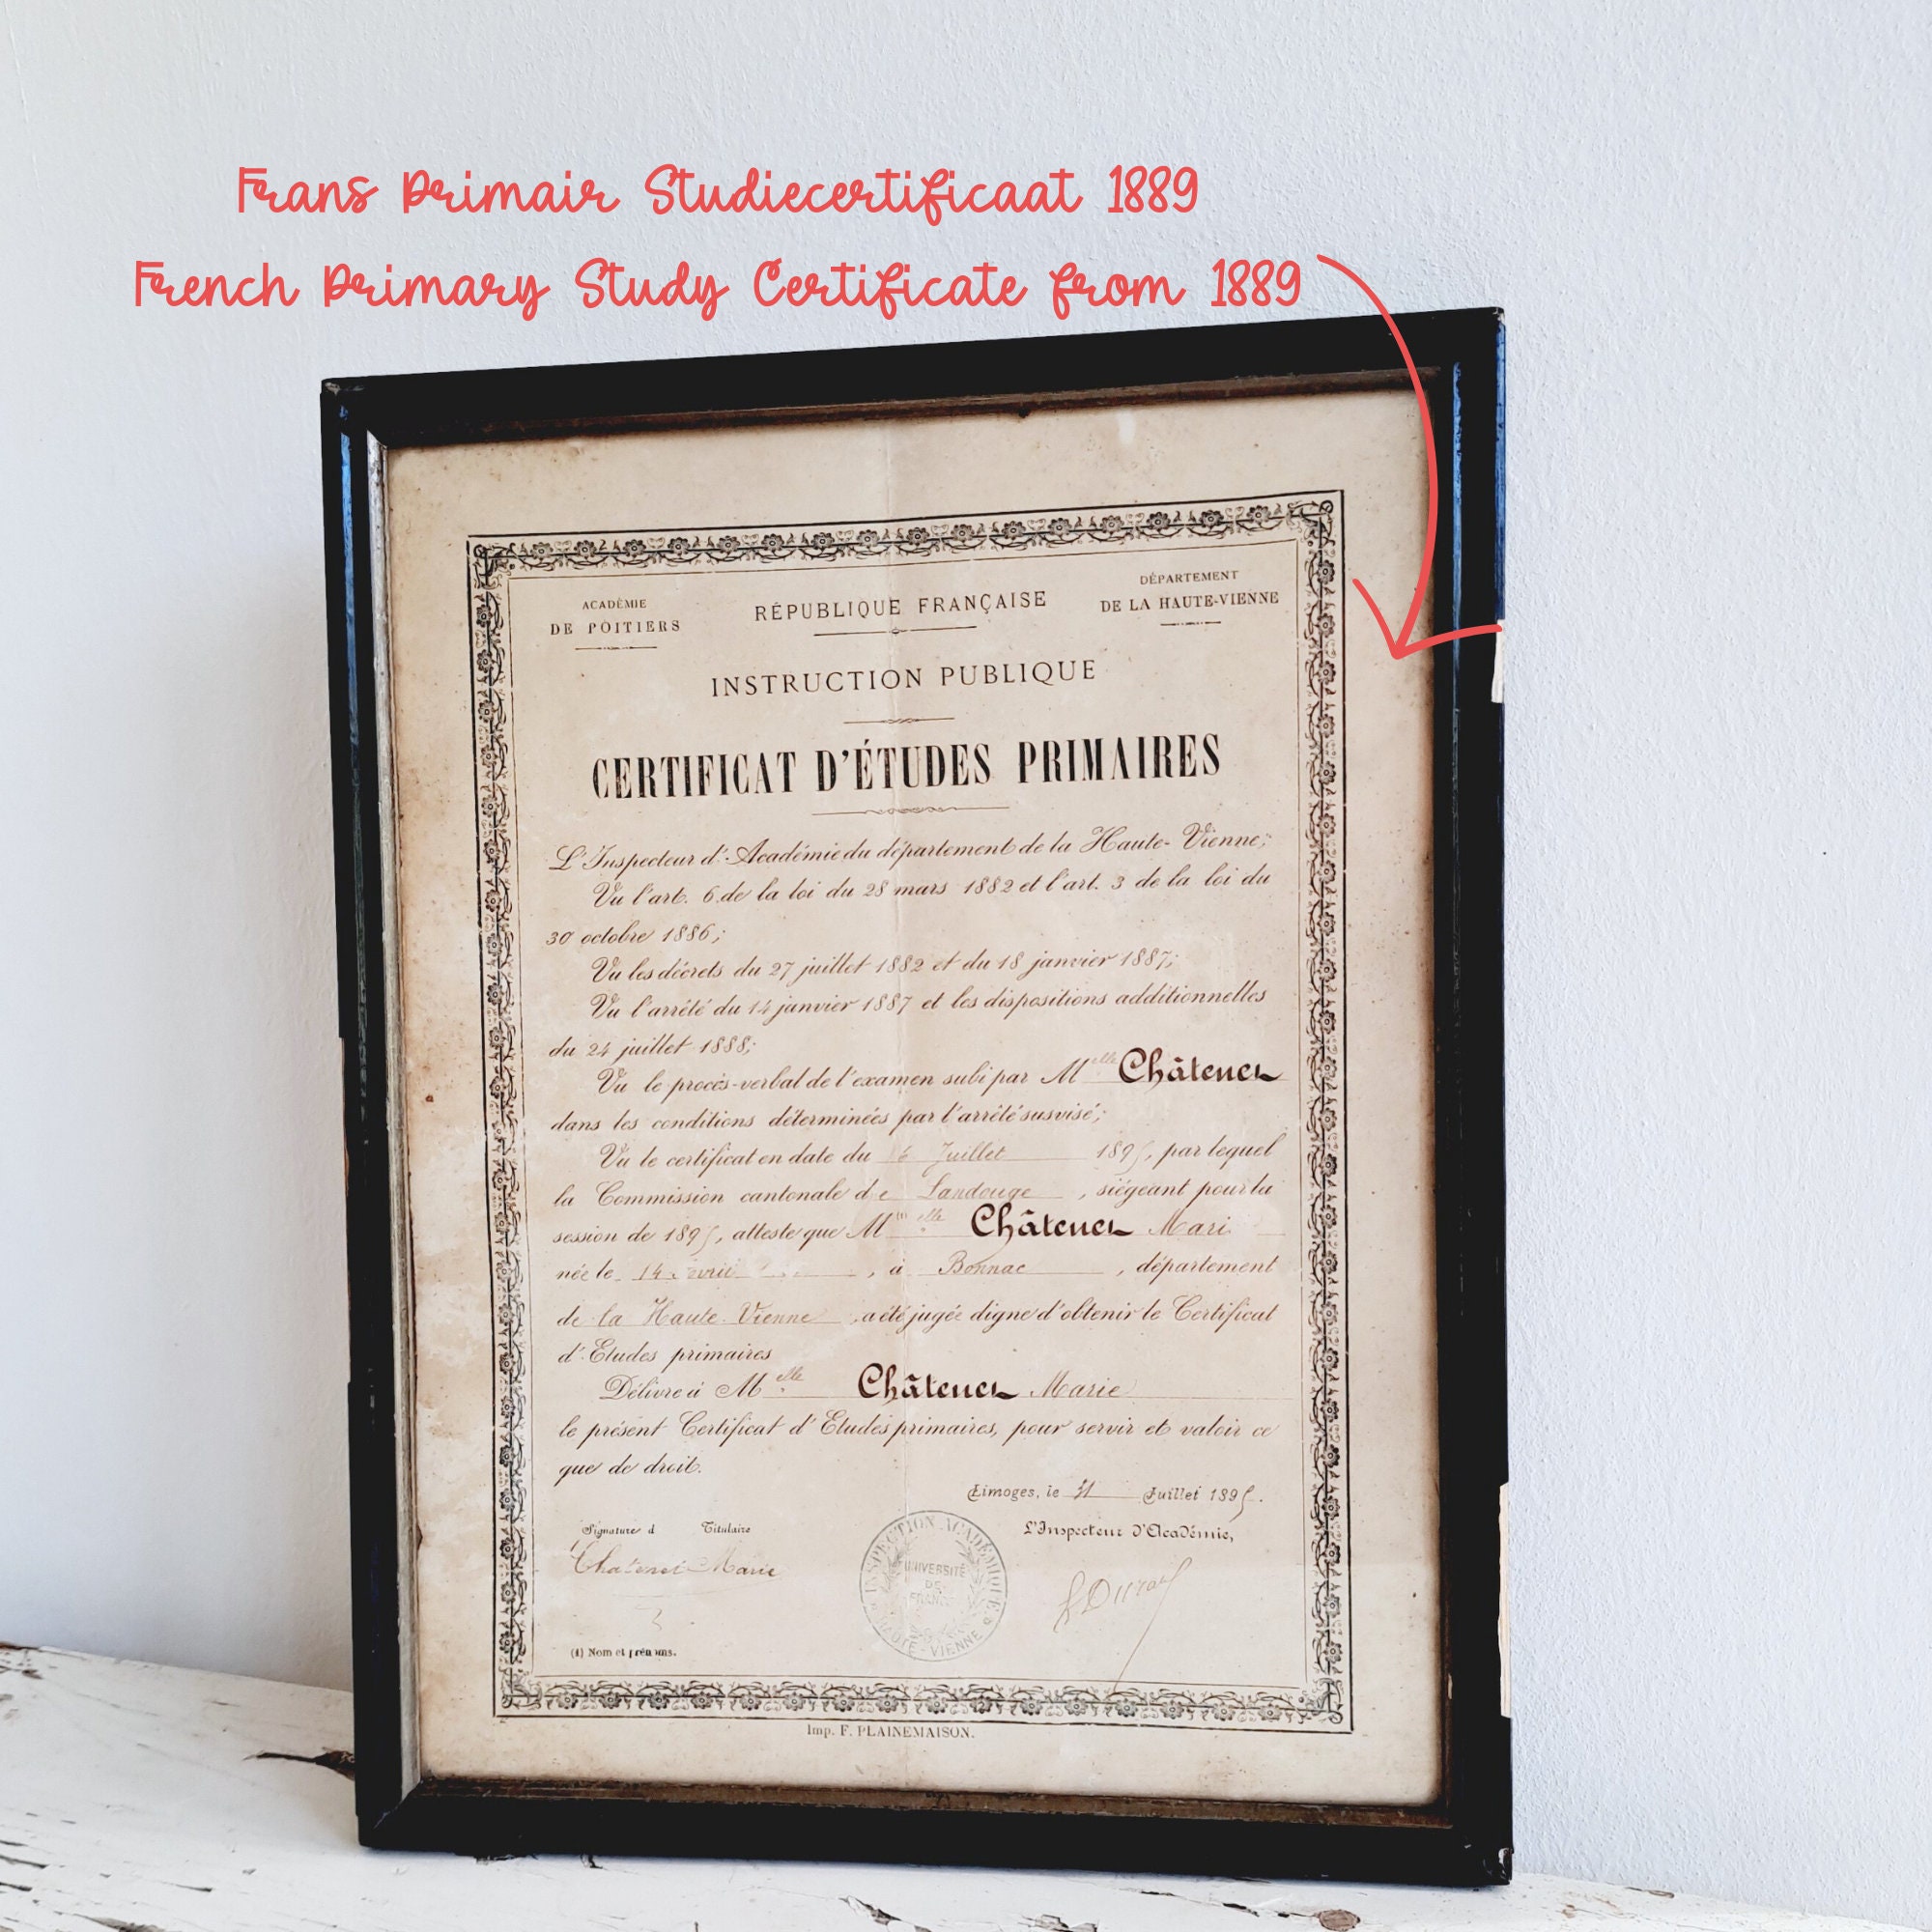 Frans Primair Studiecertificaat 1889
French Primary Study Certificate from 1889
ACADÉMIE
DE POITIERS
RÉPUBLIQUE FRANÇAISE
DÉPARTEMENT
DE LA HAUTE-VIENNE
INSTRUCTION PUBLIQUE
CERTIFICAT D'ÉTUDES PRIMAIRES
L'Inspecteur d'Académie du département de la Haute-Vienne;
Vu l'art. 6 de la loi du 28 mars 1882 et l'art. 3 de la loi du
30 octobre 1886;
Vu les décrets du 27 juillet 1882 et du 18 janvier 1887;
Vu l'arrêté du 14 janvier 1887 et les dispositions additionnelles
du 24 juillet 1888;
Vu le procès-verbal de l'examen subi par Melle Châtenet
dans les conditions déterminées par l'arrêté susvisé;
Vu le certificat en date du Juillet 1895, par lequel
la Commission cantonale de Landouge, siégeant pour la
session de 1895, atteste que Melle Châtenet
née le 14, à Bonnac, département
de la Haute Vienne, a été jugée digne d'obtenir le Certificat
d'Etudes primaires
Délivré à Melle Châtenet Marie
le présent Certificat d'Etudes primaires, pour servir et valoir ce
que de droit.
Limoges, le Juillet 1895.
Signature d Titulaire
L'Inspecteur d'Académie,
Chatenet Marie
INSPECTION ACADÉMIQUE
UNIVERSITÉ
DE
FRANCE
HAUTE-VIENNE
(1) Nom et prénoms.
Imp. F. PLAINEMAISON.